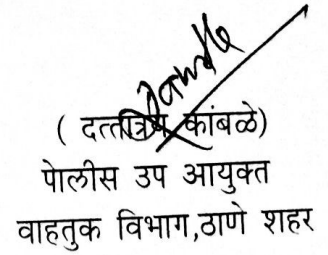 ( दत्तात्रय कांबळे)
पोलीस उप आयुक्त
वाहतुक विभाग,ठाणे शहर